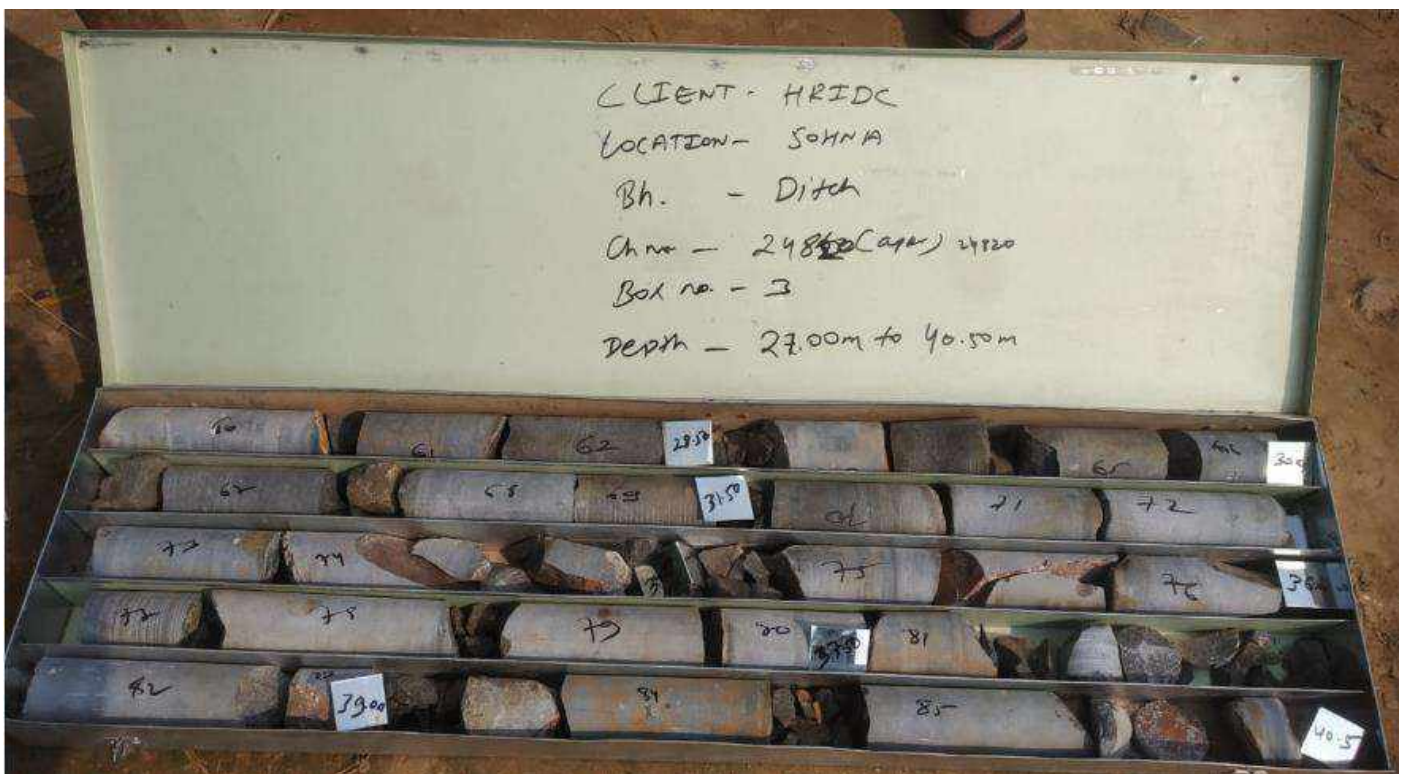 CLIENT - HRIDC
LOCATION - SOHNA
Bh. - Ditch
Ch no - 24820
Box no. - 3
Depth - 27.00m to 40.50m
61 62 28.50 65
68 69 31.50 70 71 72
73 74 75 76
77 79 80 37.50 81
82 39.00 84 85 40.5